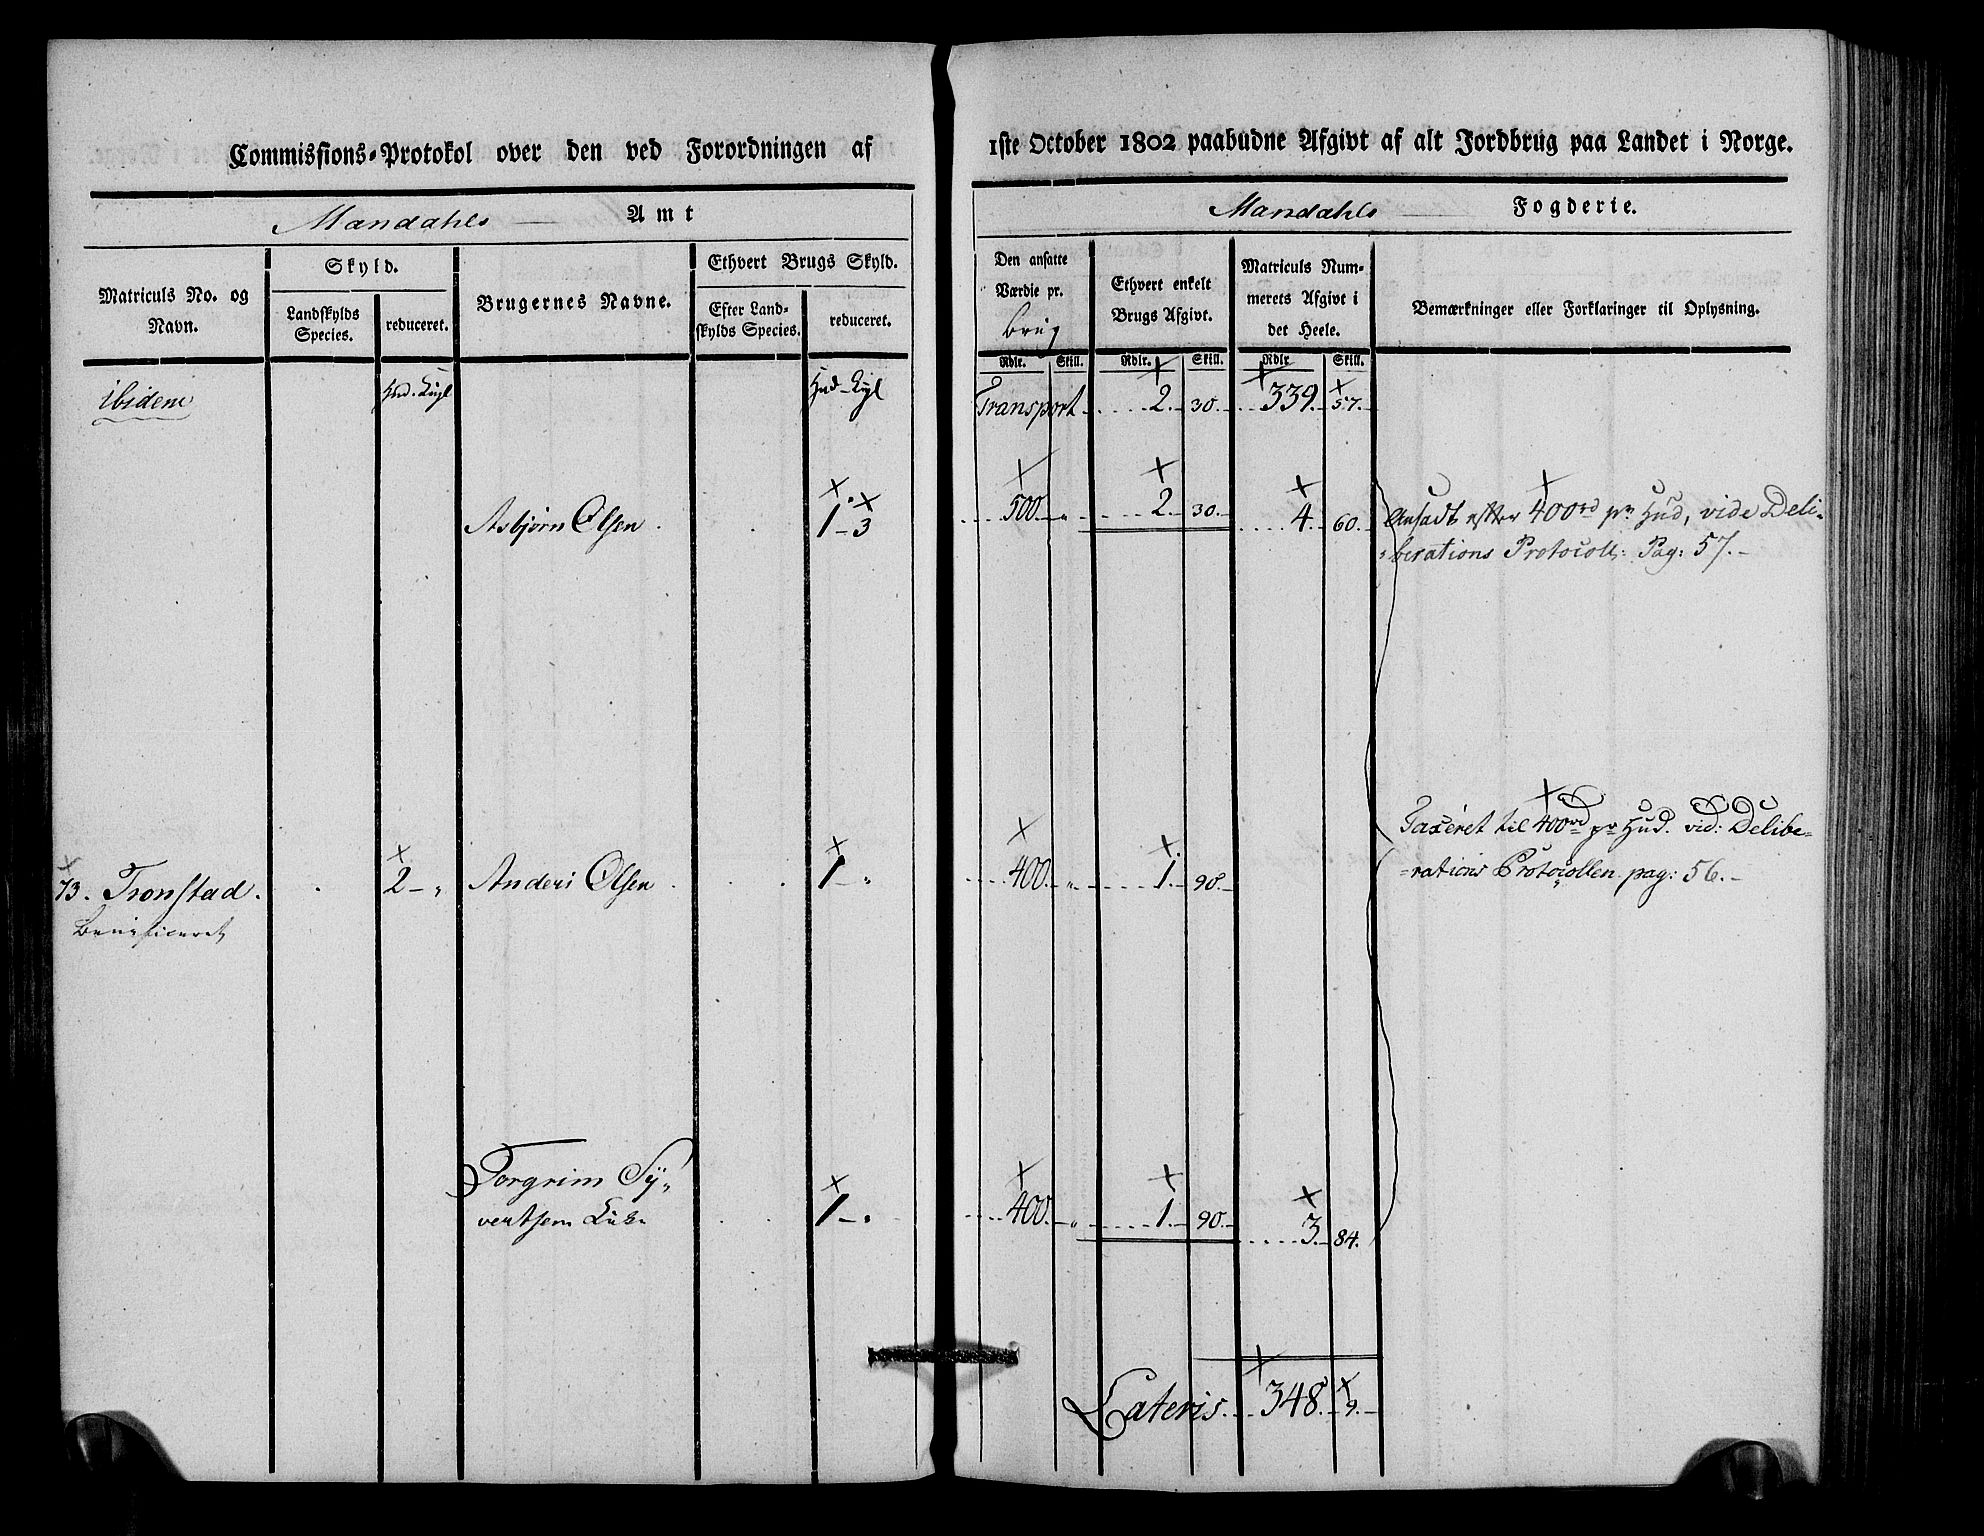 Commissions-Protokol over den ved Forordningen af
1ste October 1802 paabudne Afgivt af alt Jordbrug paa Landet i Norge.
Mandahls Amt
Mandahls Fogderie.
Matriculs No. og Navn.
Skyld.
Landskylds Species.
reduceret.
Brugernes Navne.
Ethvert Brugs Skyld.
Efter Landskylds Species.
reduceret.
Den ansatte Værdie pr. Brug
Ethvert enkelt Brugs Afgivt.
Matriculs Nummerets Afgivt i det Heele.
Bemærkninger eller Forklaringer til Oplysning.
Rdlr. Skill. Rdlr. Skill. Rdlr. Skill.
ibidem Hud. Hud
Transport 2. 30. 339. 57.
Asbjørn Olsen 1 - 3 500 " 2. 30. 4. 60. Ansadt efter 400rd pr Hud, vide Deli-
berations Protocoll: Pag: 57.-
Taxeret til 400rd pr Hud. vid: Delibe-
73. Tronstad. 2 - " Anders Olsen 1 - " 400 " 1. 90. rations Protocollen pag: 56.-
Beneficeret
Torgrim Sy-
vertsen 1 - " 400. " 1. 90. 3. 84.
Lateris 348. 9.